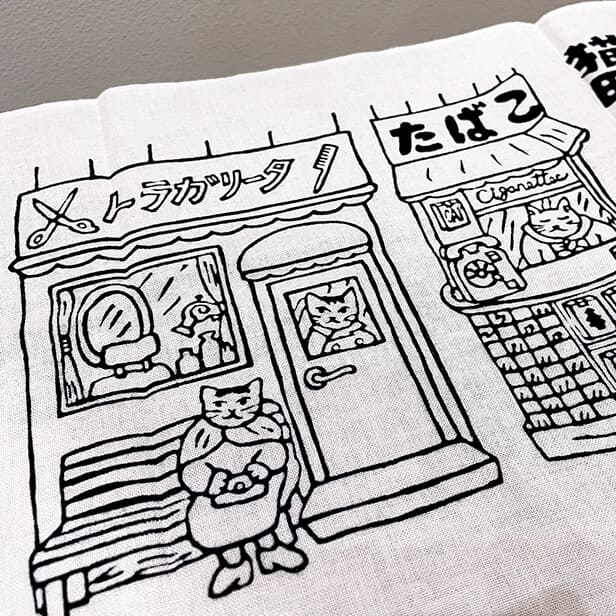 トラガリータ
たばこ
Cigarettes
猫